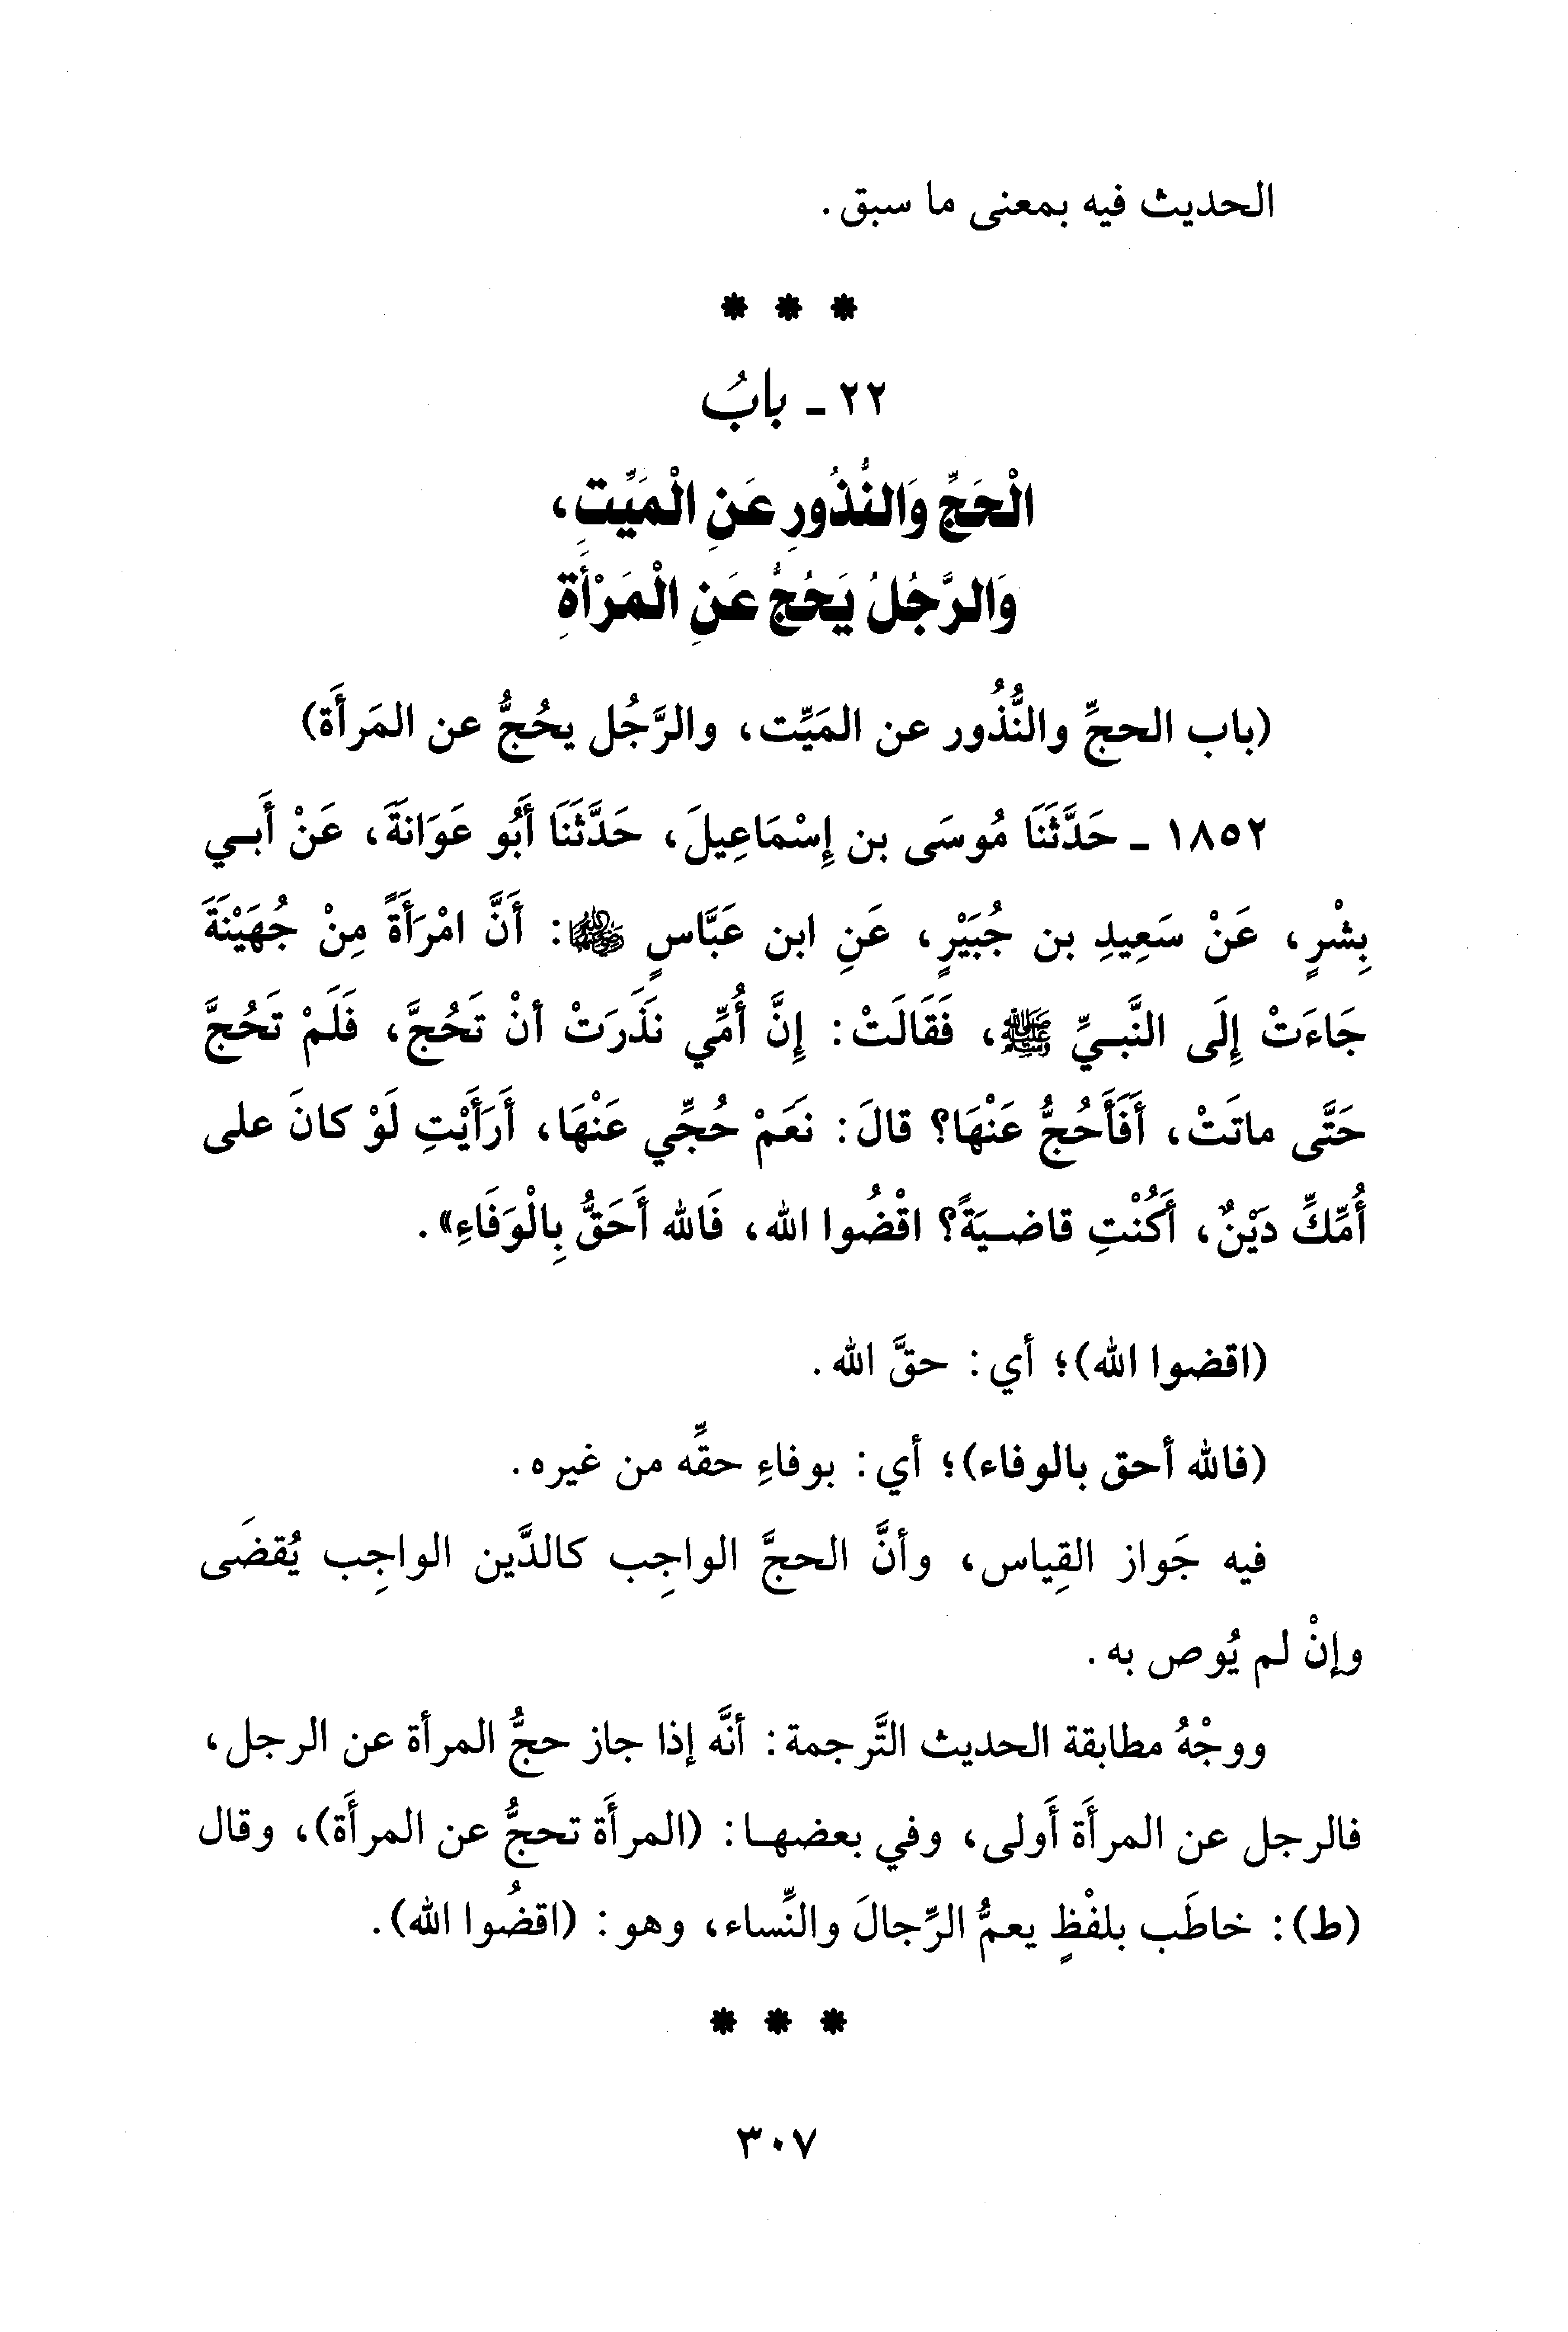 الحديث فيه بمعنى ما سبق.
* * *
٢٢ ـ بابُ
الْحَجِّ وَالنُّذُورِ عَنِ الْمَيِّتِ،
وَالرَّجُلُ يَحُجُّ عَنِ الْمَرْأَةِ
(باب الحجِّ والنُّذُور عن المَيِّت، والرَّجُل يحُجُّ عن المَرأَة)
١٨٥٢ ـ حَدَّثَنَا مُوسَى بن إِسْمَاعِيلَ، حَدَّثَنَا أَبُو عَوَانَةَ، عَنْ أَبـي
بِشْرٍ، عَنْ سَعِيدِ بن جُبَيْرٍ، عَنِ ابن عَبَّاسٍ ﵄: أَنَّ امْرَأَةً مِنْ جُهَيْنَةَ
جَاءَتْ إِلَى النَّبـيِّ ﷺ، فَقَالَتْ: إِنَّ أُمِّي نذَرَتْ أنْ تَحُجَّ، فَلَمْ تَحُجَّ
حَتَّى ماتَتْ، أَفَأَحُجُّ عَنْهَا؟ قالَ: نعَمْ حُجِّي عَنْهَا، أَرَأَيْتِ لَوْ كانَ على
أُمِّكِّ دَيْنٌ، أَكُنْتِ قاضـيَةً؟ اقْضُوا الله، فَالله أَحَقُّ بِالْوَفَاءِ».
(اقضوا الله)؛ أي: حقَّ الله.
(فالله أحق بالوفاء)؛ أي: بوفاءِ حقِّه من غيره.
فيه جَواز القِياس، وأنَّ الحجَّ الواجِب كالدَّين الواجِب يُقضَى
وإنْ لم يُوص به.
ووجْهُ مطابقة الحديث التَّرجمة: أنَّه إذا جاز حجُّ المرأة عن الرجل،
فالرجل عن المرأَة أَولى، وفي بعضهـا: (المرأَة تحجُّ عن المرأَة)، وقال
(ط): خاطَب بلفْظٍ يعمُّ الرِّجالَ والنِّساء، وهو: (اقضُوا الله).
* * *
٣٠٧